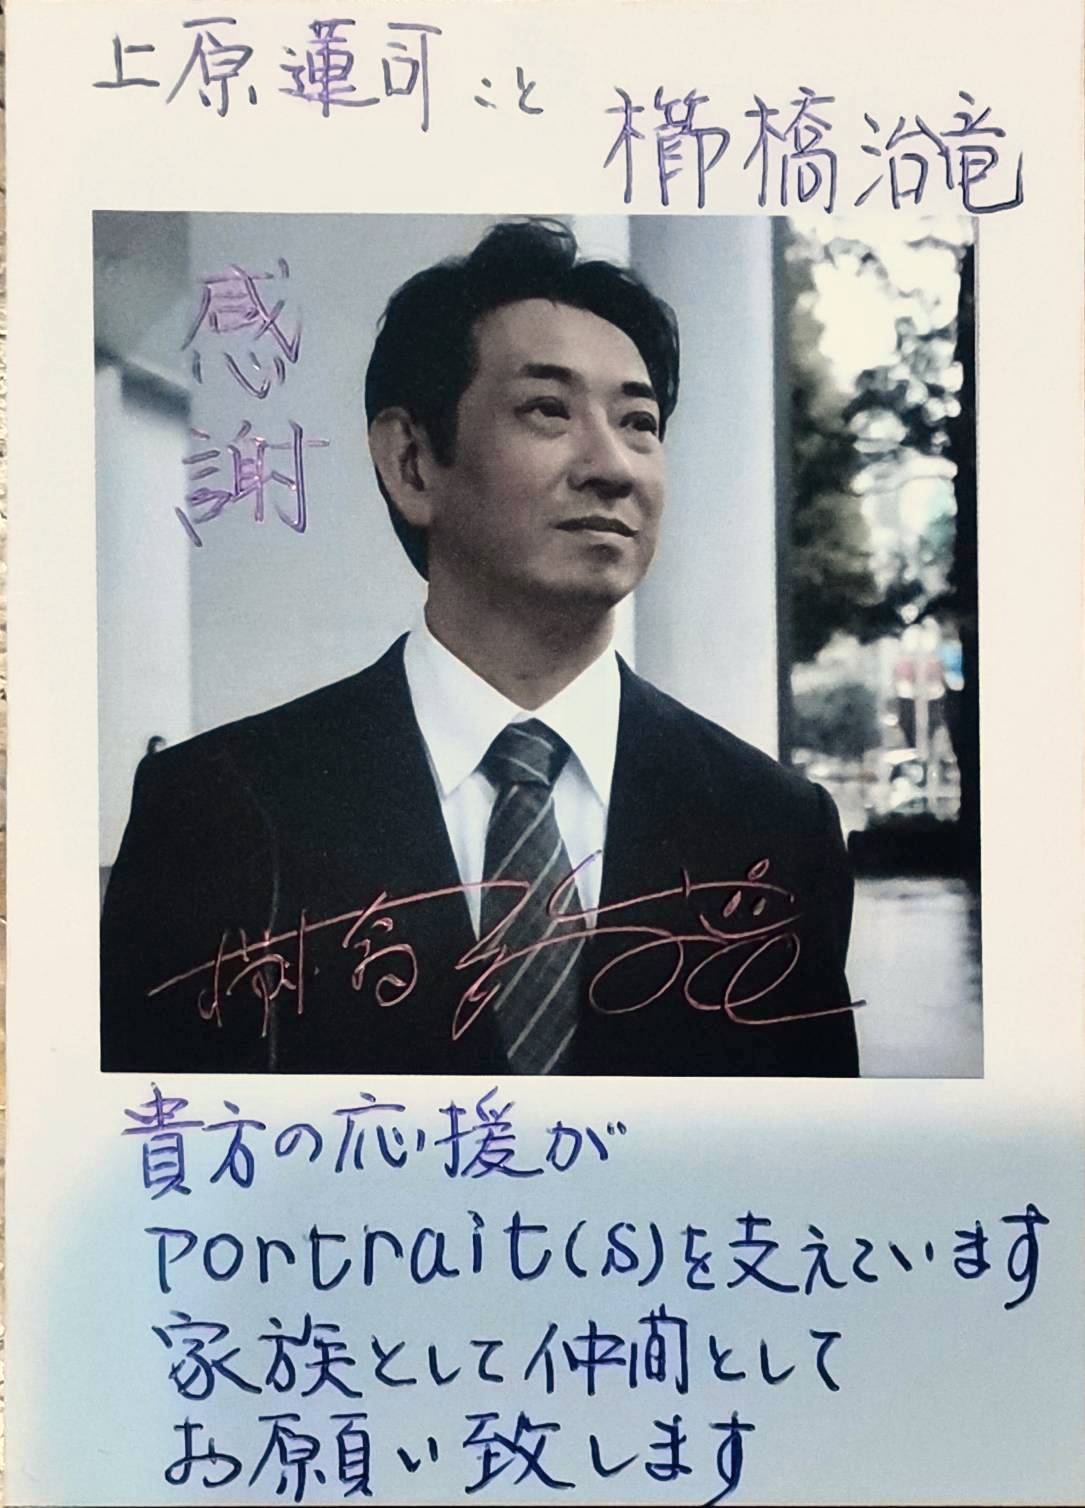 上原蓮司 こと
櫛橋治竜
感謝
貴方の応援が
portrait(s)を支えています
家族として仲間として
お願い致します